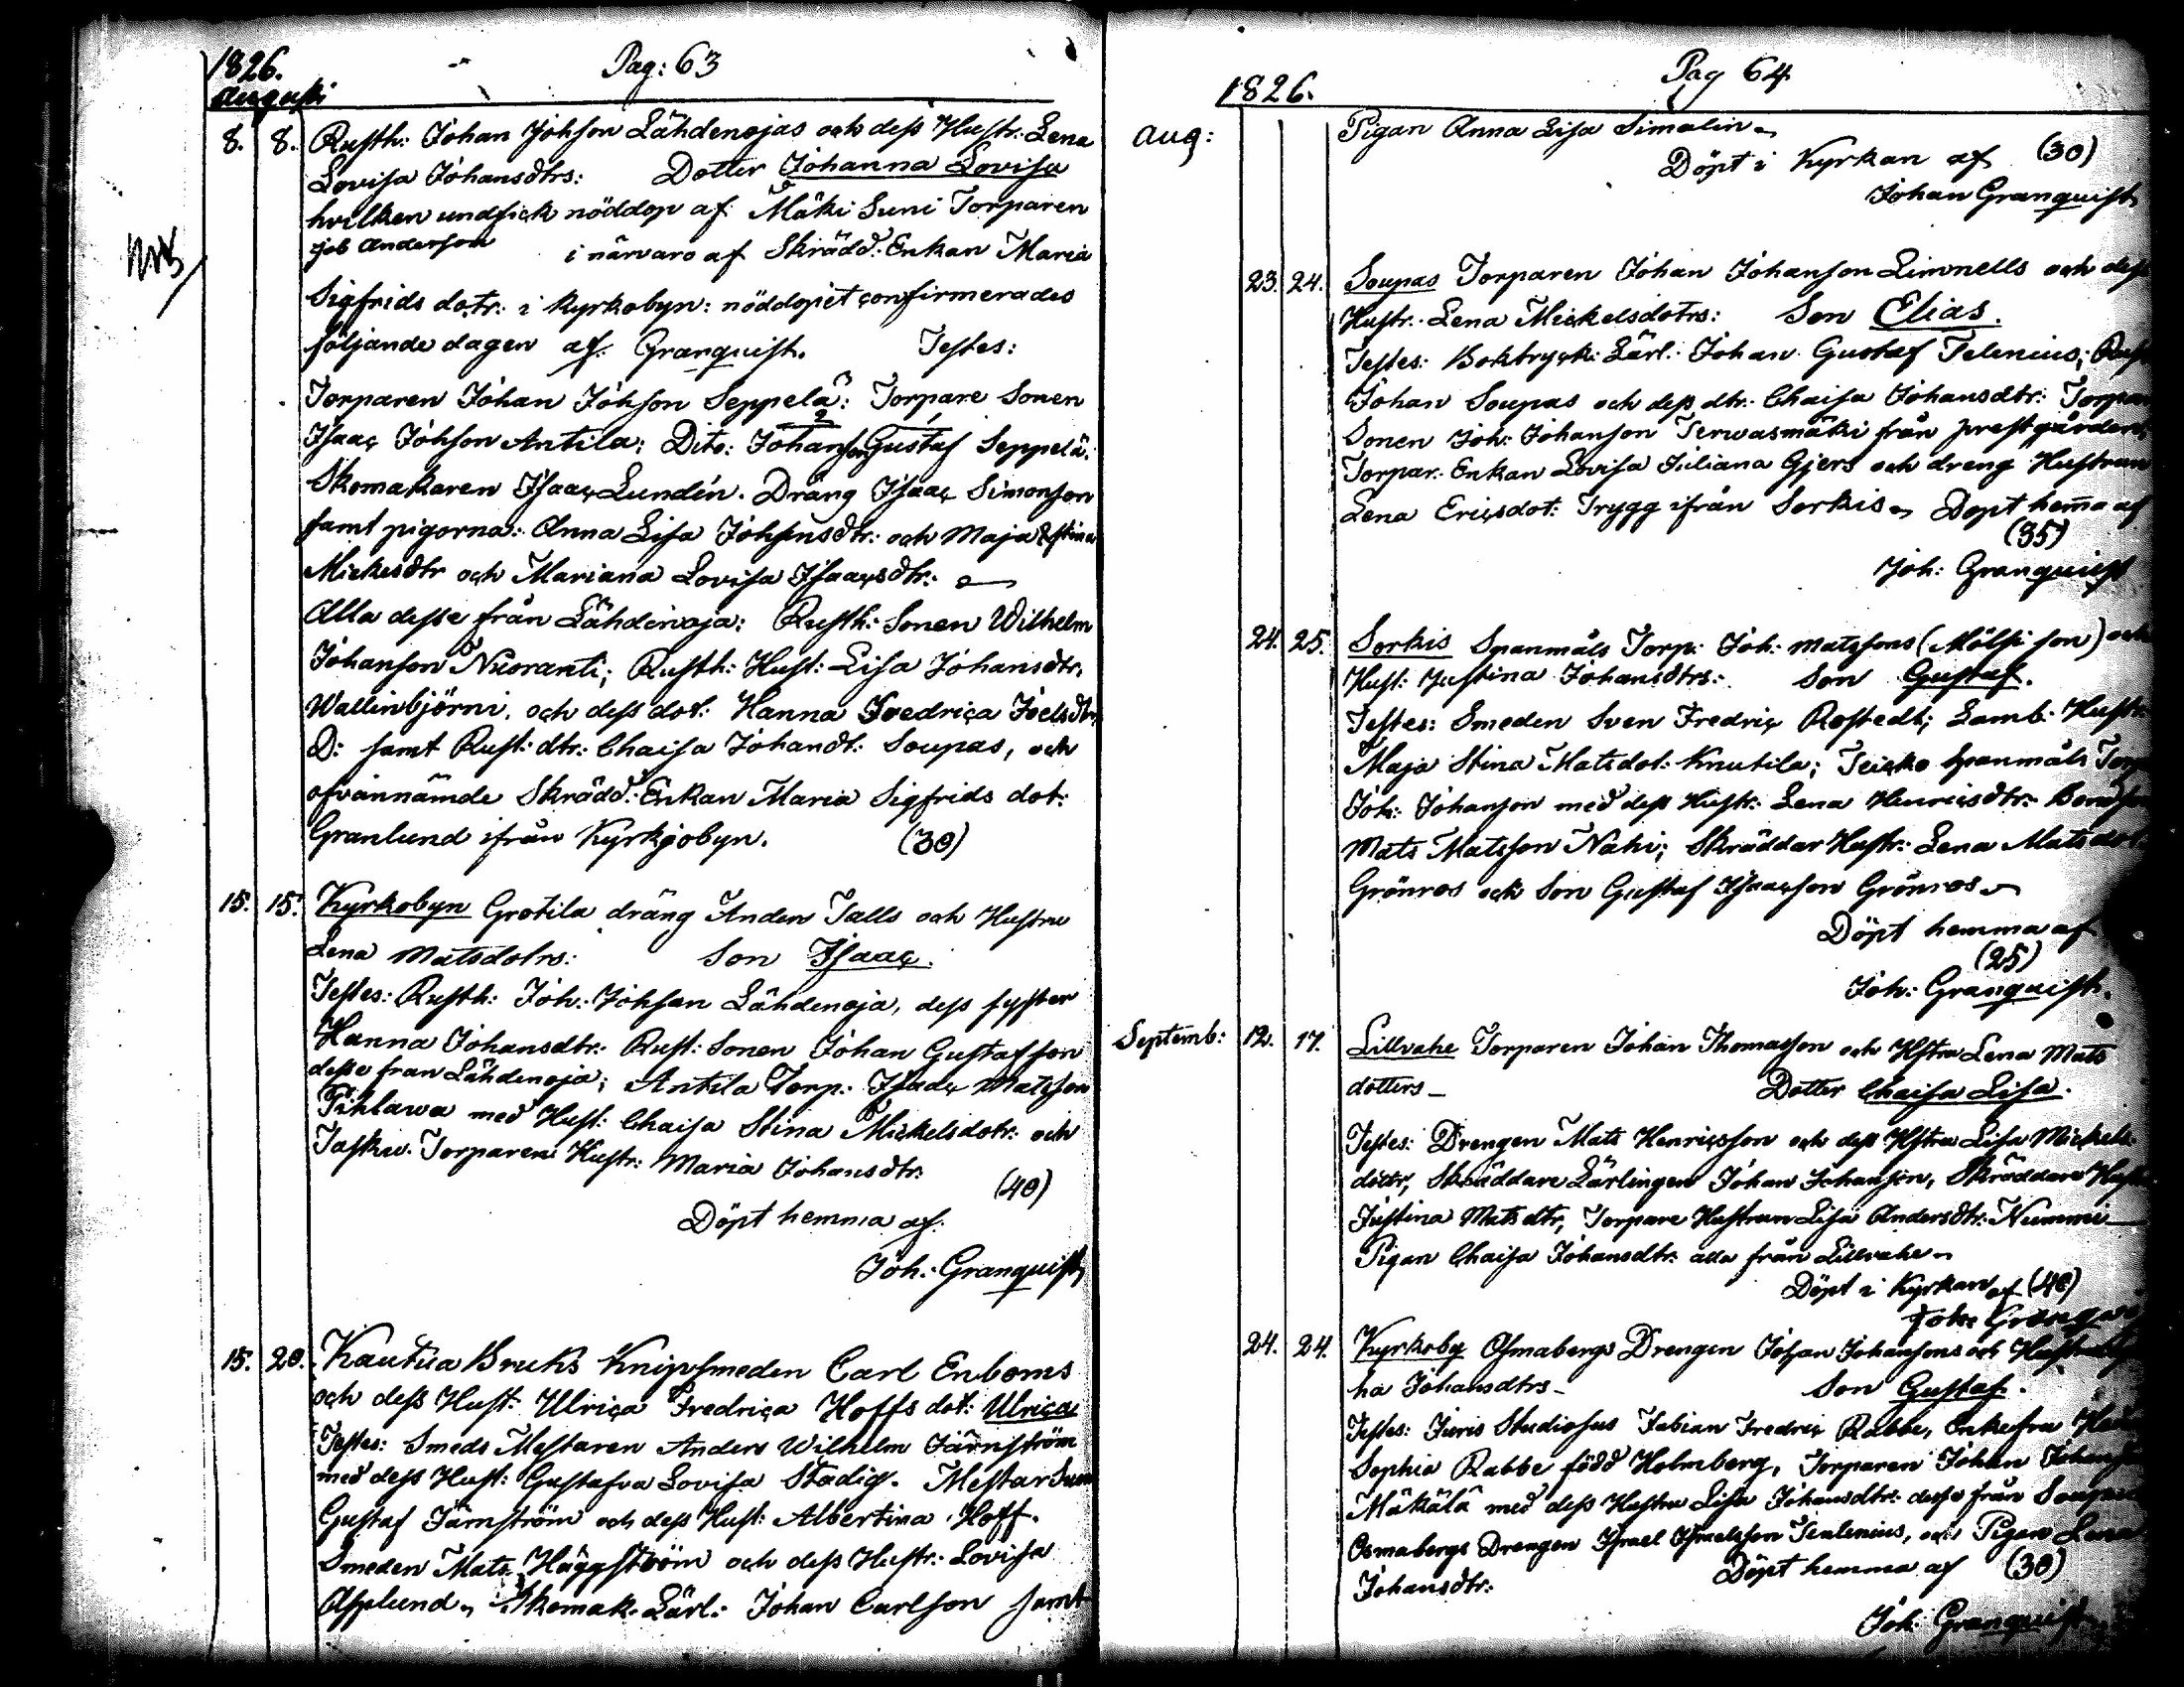 1826.
Pag: 63
Augusti
8. 8. Rusth: Johan Johsson Lähdenojas och dess Hustr: Lena
Lovisa Johansdtrs: Dotter Johanna Lovisa
hvilken undfick nöddop af Mäki Suni Torparen
Job Anderson i närvaro af Skrädd: Enkan Maria
NB
Sigfrids dotr: i kyrkobyn: nöddopet confirmerades
följande dagen af Granquist. Testes:
Torparen Johan Johson Seppelä: Torpare Sonen
Isaac Johson Antila: Dito: Johanson Gustaf Seppelä:
Skomakaren Isaac Lundén. Dräng Isaac Simonson
samt pigorna: Anna Lisa Johsnsdtr: och Maja Stina
Mickesdtr och Mariana Lovisa Isaacsdtr:
Alla desse från Lähdenoja: Rusth: Sonen Wilhelm
Johanson Nuoranti; Rusth: Hust: Lisa Johansdtr.
Wallinbjörni, och dess dot: Hanna Fredrica Joelsdtr
D: samt Rust: dtr: Chaisa Johandt: Soupas, och
ofvannämde Skrädd: Enkan Maria Sigfrids dot:
Granlund ifrån Kyrkjobyn. (30)
15. 15. Kyrkobyn Grotila dräng Anders Talls och Hustru
Lena Matsdotrs: Son Isaac.
Testes: Rusth: Joh: Johsson Lähdenoja, dess syster
Hanna Johansdtr: Rust: Sonen Johan Gustafsson
desse fran Lähdenoja; Antila Torp: Isaac Matsson
Pihlawa med Hust: Chaisa Stina Mickelsdotr: och
Torparens Hustr: Maria Johansdtr:
(40)
Döpt hemma af
Joh: Granquist
15. 20. Kautua Bruks Knipsmeden Carl Enboms
och dess Hust: Ulrica Fredrica Hoffs dot: Ulrica
Testes: Smeds Mestaren Anders Wilhelm Järnström
med dess Hust: Gustafva Lovisa Stadig. Mestar
Gustaf Järnström och dess Hust: Albertina Hoff.
Smeden Mats Häggström och dess Hustr: Lovisa
Asplund, Skomak: Lärl: Johan Carlson samt
Pag 64
1826.
Aug: Pigan Anna Lisa Simelin
Döpt i Kyrkan af (30)
Johan Granquist
23. 24. Soupas Torparen Johan Johanson Linnells och dess
Hustr: Lena Mickelsdotrs: Son Elias.
Testes: Boktryck: Lärl: Johan Gustaf Telenius; Rust
Johan Soupas och dess dtr: Chaisa Johansdtr: Torpar
Sonen Joh: Johanson Terwasmäki från prestgården,
Torpar: Enkan Lovisa Juliana Gjers och dreng Hustrun
Lena Ericsdot: Trygg ifrån Sorkis Dopt hemma af
(35)
Joh: Granquist
24. 25. Sorkis Spanmåls Torp: Joh: Matssons (Mölsi son) och
Hust: Justina Johansdtrs: Son Gustaf.
Testes: Smeden Sven Fredric Rostedt; Lamb: Hustr:
Maja Stina Matsdot: Knutila; Teicko Spanmåls Torp
Joh: Johanson med dess Hustr: Lena Henricsdtr:
Mats Matsson Nahi; Skräddar Hustr: Lena Matsdot:
Grönroos och Son Gustaf Isaacson Grönroos
Döpt hemma af
(25)
Joh: Granquist.
Septemb: 12. 17. Lillvahe Torparen Johan Thomasson och Hstru Lena Mats
dotters Dotter Chaisa Lisa.
Testes: Drengen Mats Henricsson och dess Hstru Lisa Mickels
dotter, Skräddare Lärlingen Johan Johanson, Skräddare Hust
Justina Matsdtr, Torpare Hustrun Lisa Andersdtr: Nummi
Pigan Chaisa Johansdtr: alla från Lillvahe
Döpt i Kyrkan af (40)
24. 24. Kyrkoby Osmabergs Drengen Johan Johansons och
ha Johansdtrs Son Gustaf.
Testes: Juris Studiosus Fabian Fredric Rabbe, Enkefru
Sophia Rabbe född Holmberg, Torparen Johan
Mäkälä med dess Hustru Lisa Johansdtr: desse från
Osmabergs Drengen Israel Ismelsson Tenlenius, och Pigan Lena
Johansdtr: Döpt hemma af (30)
Joh: Granquist